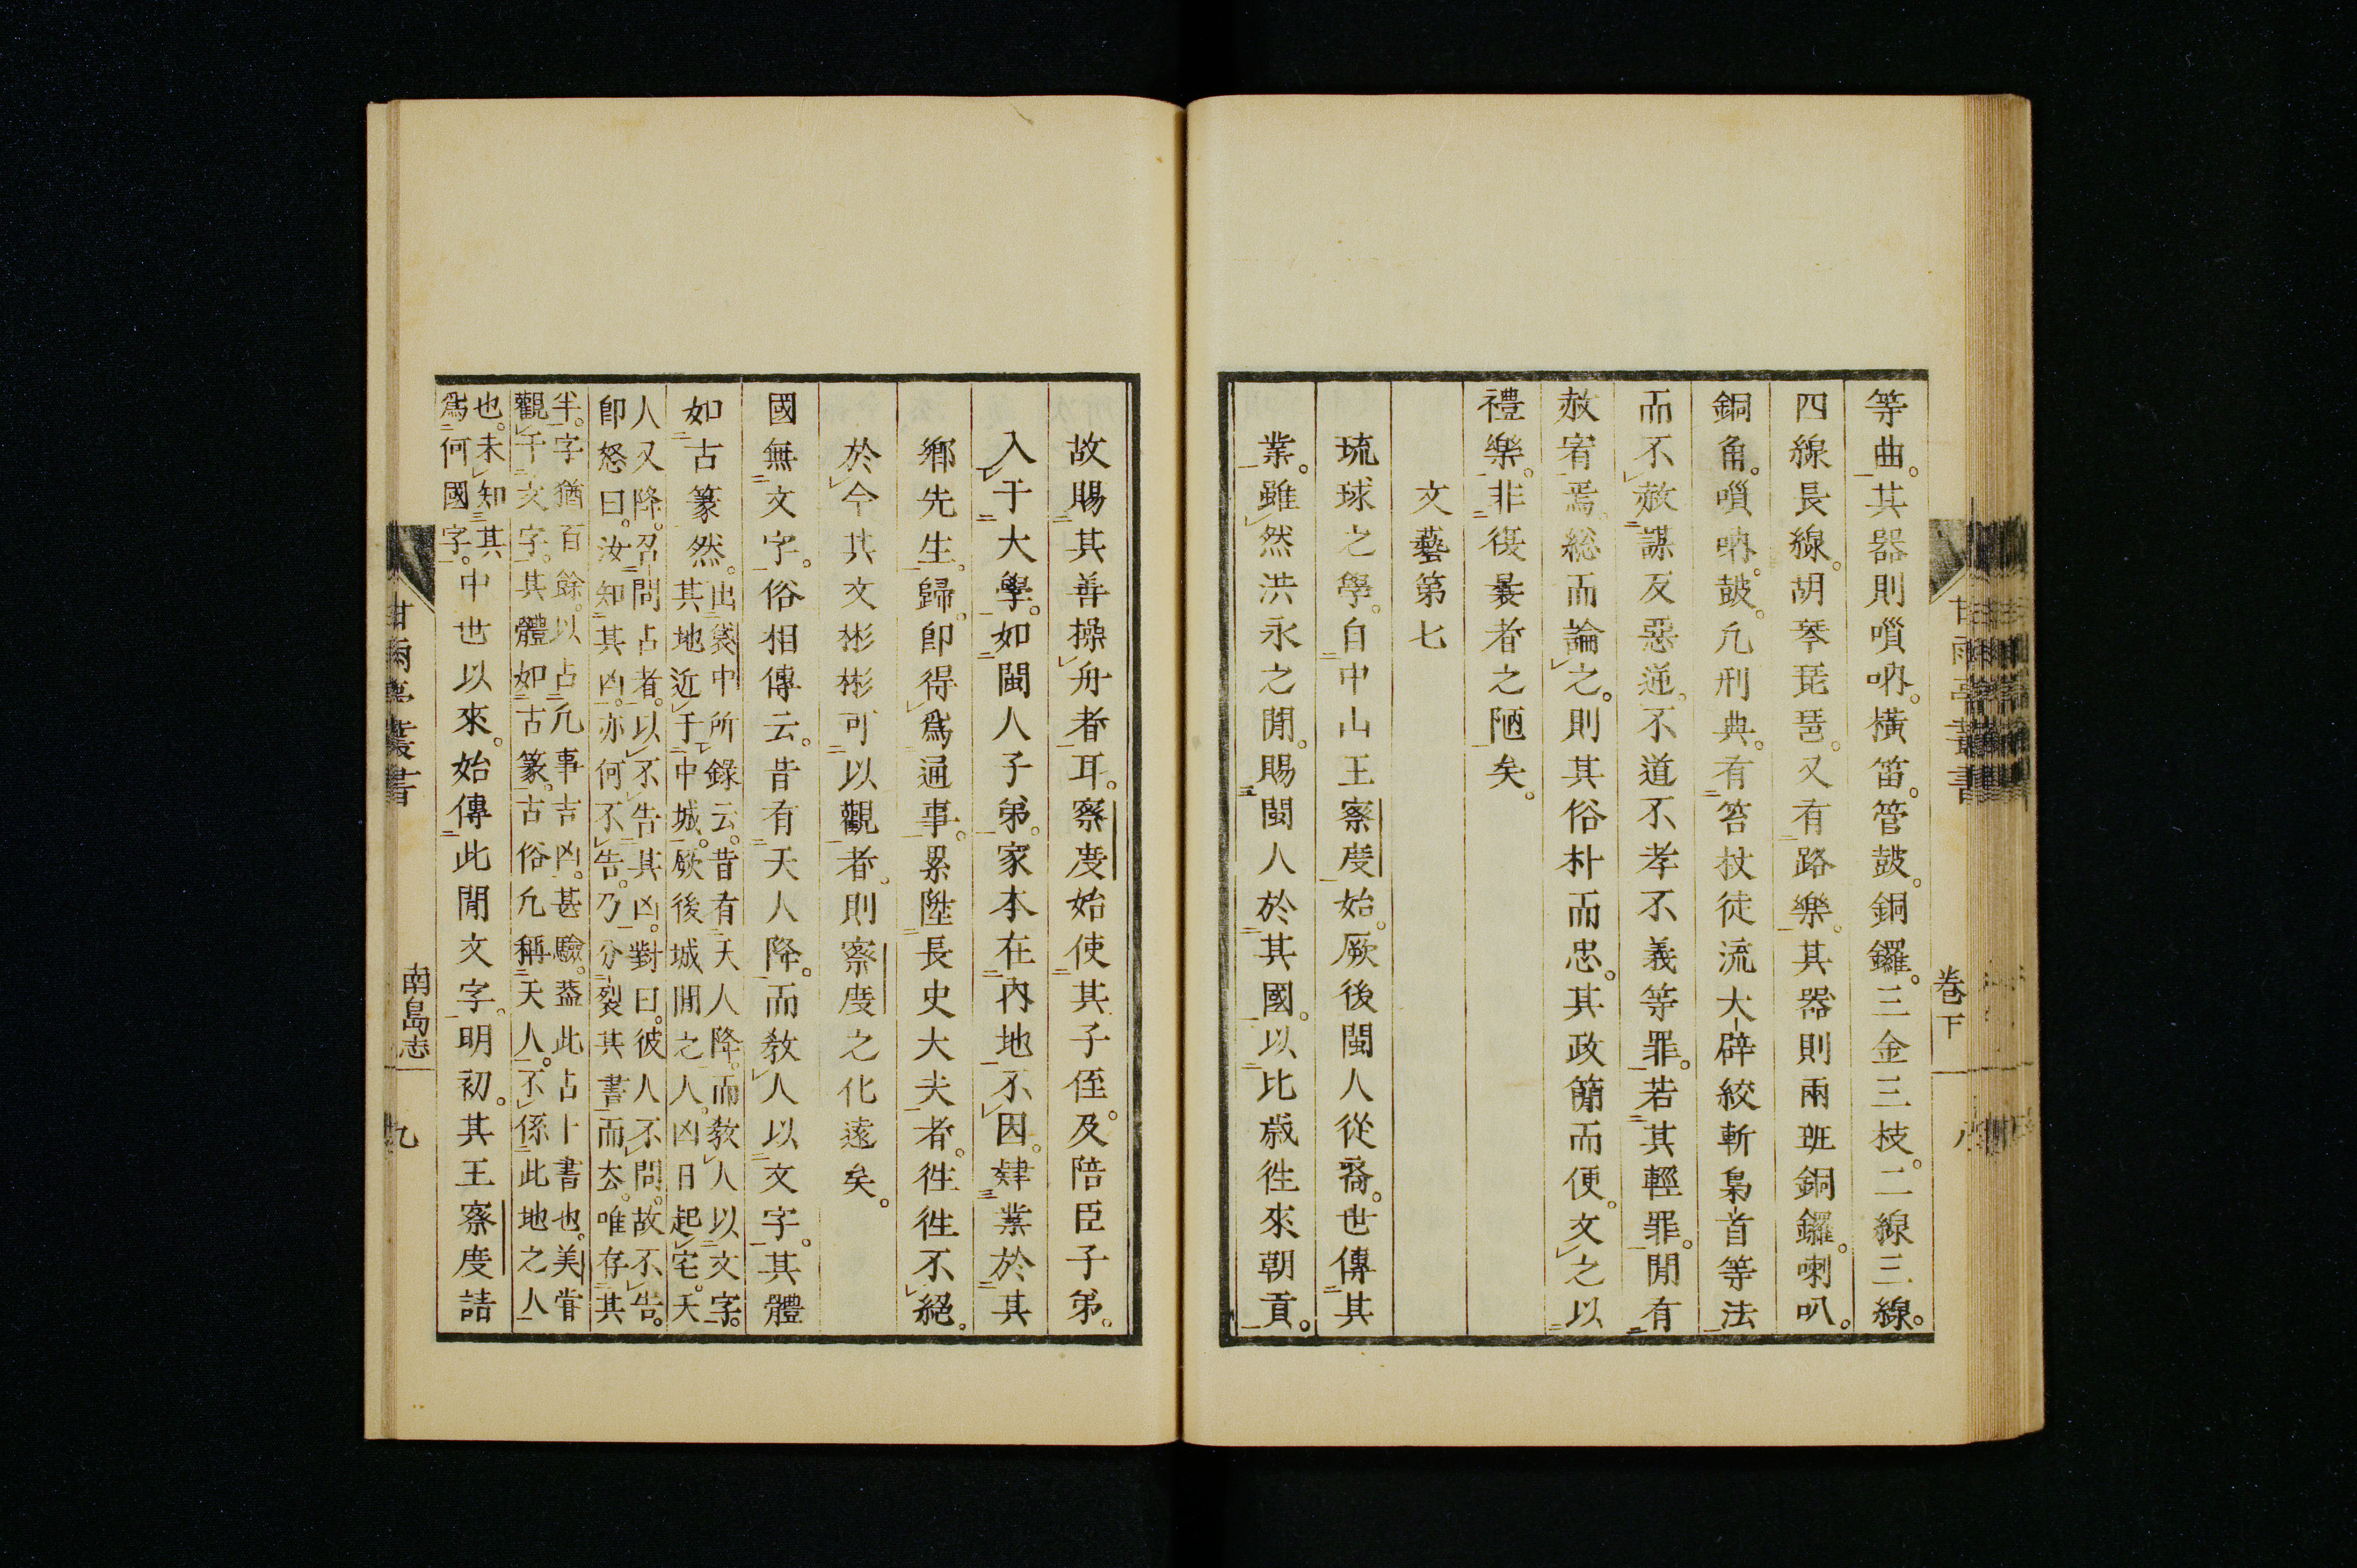 等曲。其器則嗩吶。橫笛。管鼓。銅鑼。三金三枝。二線三線。
四線長線。胡琴琵琶。又有路樂。其器則兩班銅鑼。喇叭。
銅角。嗩吶。鼓。凡刑典。有笞杖徒流大辟絞斬梟首等法
而不赦謀反惡逆。不道不孝不義等罪。若其輕罪。閒有
赦宥焉。総而論之。則其俗朴而忠。其政簡而便。文之以
禮樂。非復曩者之陋矣。
文藝第七
琉球之學。自中山王察度始。厥後閩人從裔。世傳其
業。雖然洪永之閒。賜閩人於其國。以比歲徃來朝貢。
甘雨亭叢書
卷下
八
故賜其善操舟者耳。察度始使其子侄。及陪臣子弟。
入于大學。如閩人子弟。家本在內地不因。肄業於其
鄉先生。歸。卽得爲通事。累陞長史大夫者。徃徃不絕。
於今其文彬彬可以觀者。則察度之化遠矣。
國無文字。俗相傳云。昔有天人降。而敎人以文字。其體
如古篆然。出袋中所錄云。昔有天人降。而敎人以文字。
其地近于中城。厥後城閒之人。凶日起宅。天
人又降。召問占者。以不告其凶。對曰。彼人不問。故不告。
卽怒曰。汝知其凶。亦何不告。乃分裂其書而去。唯存其
半。字猶百餘。以占凡事吉凶。甚驗。葢此占卜書也。美嘗
觀于文字。其體如古篆。古俗凡稱天人。不係此地之人
也。未知其
爲何國字。中世以來。始傳此閒文字。明初。其王察度詰
甘雨亭叢書
南島志
九